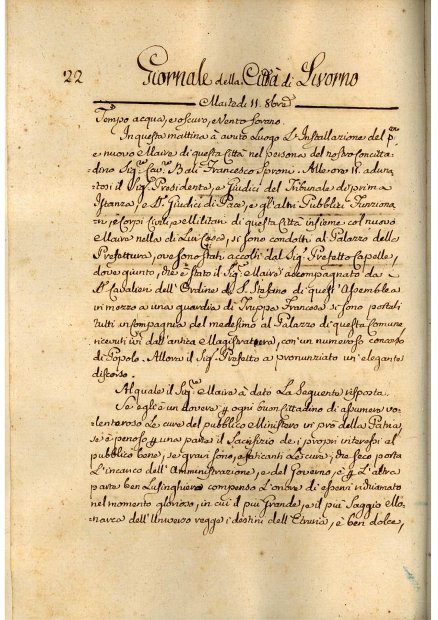 22 Giornale della Città di Livorno
Martedì 11. 8bre
Tempo acqua, e oscuro, e Vento
In questa mattina à avuto Luogo L'Installazione del p.
e nuovo Maire di questa Città nel persona del nostro Concitta-
dino Sig.r Cav.r Bali Francesco Sproni. Alle ore 11. aduna-
tosi il Sig.r Presidente, e Giudici del Tribunale di prima
Istanza, e Giudici di Pace, e gl'altri Pubblici Funziona-
ri, e Corpi Civili, e Militari di questa Città insieme col nuovo
Maire nella di Lui Casa, si sono condotti al Palazzo della
Prefettura, ove sono stati accolti dal Sig.r Prefetto Capelle,
dove giunto, che è stato il Sig.r Maire accompagnato da
Cavalieri dell'Ordine di S. Stefano di quest'Assemblea
in mezzo a una guardia di Truppa Francese si sono portati
tutti in Compagnia del medesimo al Palazzo di questa Comune,
ricevuti ivi dall'antica Magistratura, con un numeroso concorso
di Popolo. Allora il Sig.r Prefetto a pronunziato un elegante
discorso.
Al quale il Sig.r Maire à dato La Seguente risposta.
Se egli è un dovere ogni buon Cittadino di assumere vo-
lenteroso Le cure del pubblico Ministero in prò della Patria,
se è penoso una parte il Sacrifizio de i propri interessi al
pubblico bene, se gravi sono, e faticanti Le cure, che seco porta
L'incarico dell'Amministrazione, e del Governo, è L'altra
parte ben Lusinghiero compenso L'onore di esservi richiamato
nel momento glorioso, in cui il più Grande, e il più Saggio Mo-
narca dell'Universo regge i destini dell'Etruria, è ben dolce,